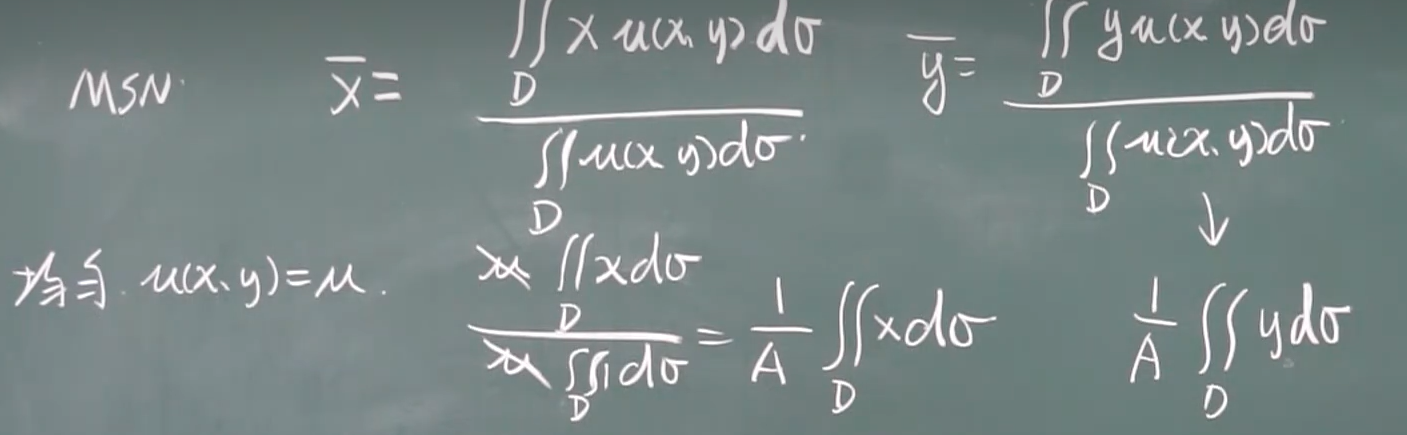 MSN. x̄ = ∬_D x u(x, y) dσ / ∬_D u(x y) dσ. ȳ = ∬_D y u(x y) dσ / ∬_D u(x, y) dσ
↓
均匀. u(x, y) = u. u ∬_D x dσ / u ∬_D 1 dσ = 1/A ∬_D x dσ 1/A ∬_D y dσ